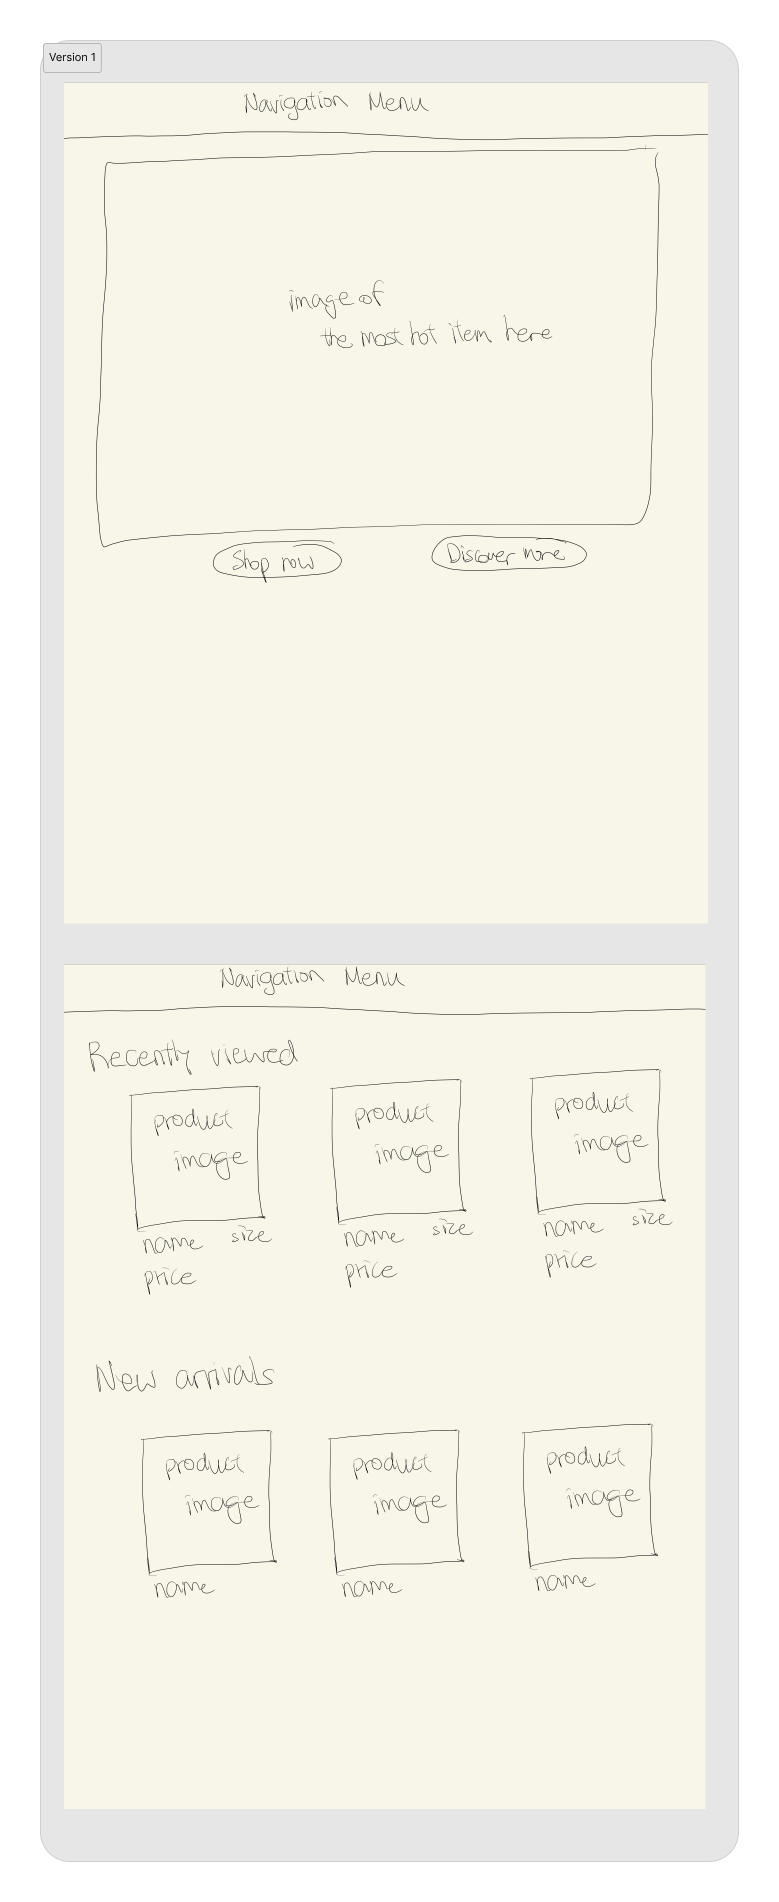 Version 1
Navigation Menu
image of
the most hot item here
Shop now
Discover more
Navigation Menu
Recently viewed
product
image
name size
price
product
image
name size
price
product
image
name size
price
New arrivals
product
image
name
product
image
name
product
image
name